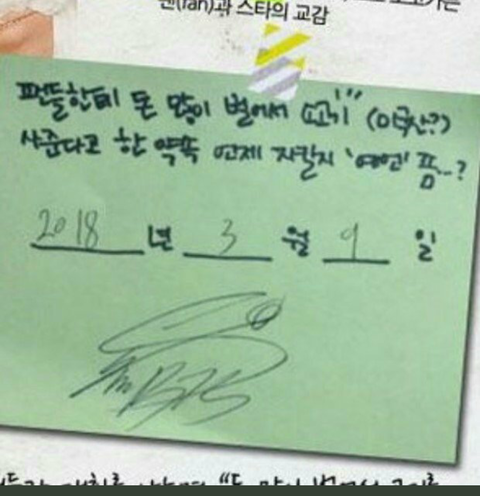 팬(fan)과 스타의 교감
팬들한테 돈 많이 벌어서 고기''' (미국산?)
사준다고 한 약속 언제 지킬지 '예언' 쯤..?
2018 년 3 월 9 일
BTS